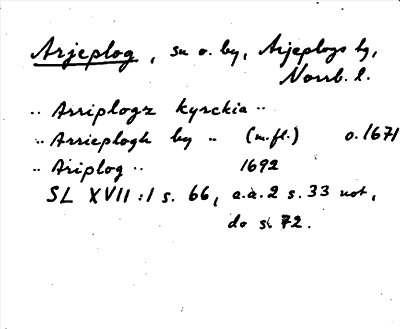 Arjeplog, sn o. by, Arjeplogs tg,
Norrb. l.
.. Arriplogz kyrckia ..
.. Arrieplogh by .. (m.fl.) o. 1671
.. Ariplog .. 1692
SL XVII:1 s. 66, a.a. 2 s. 33 not,
do s. 72.